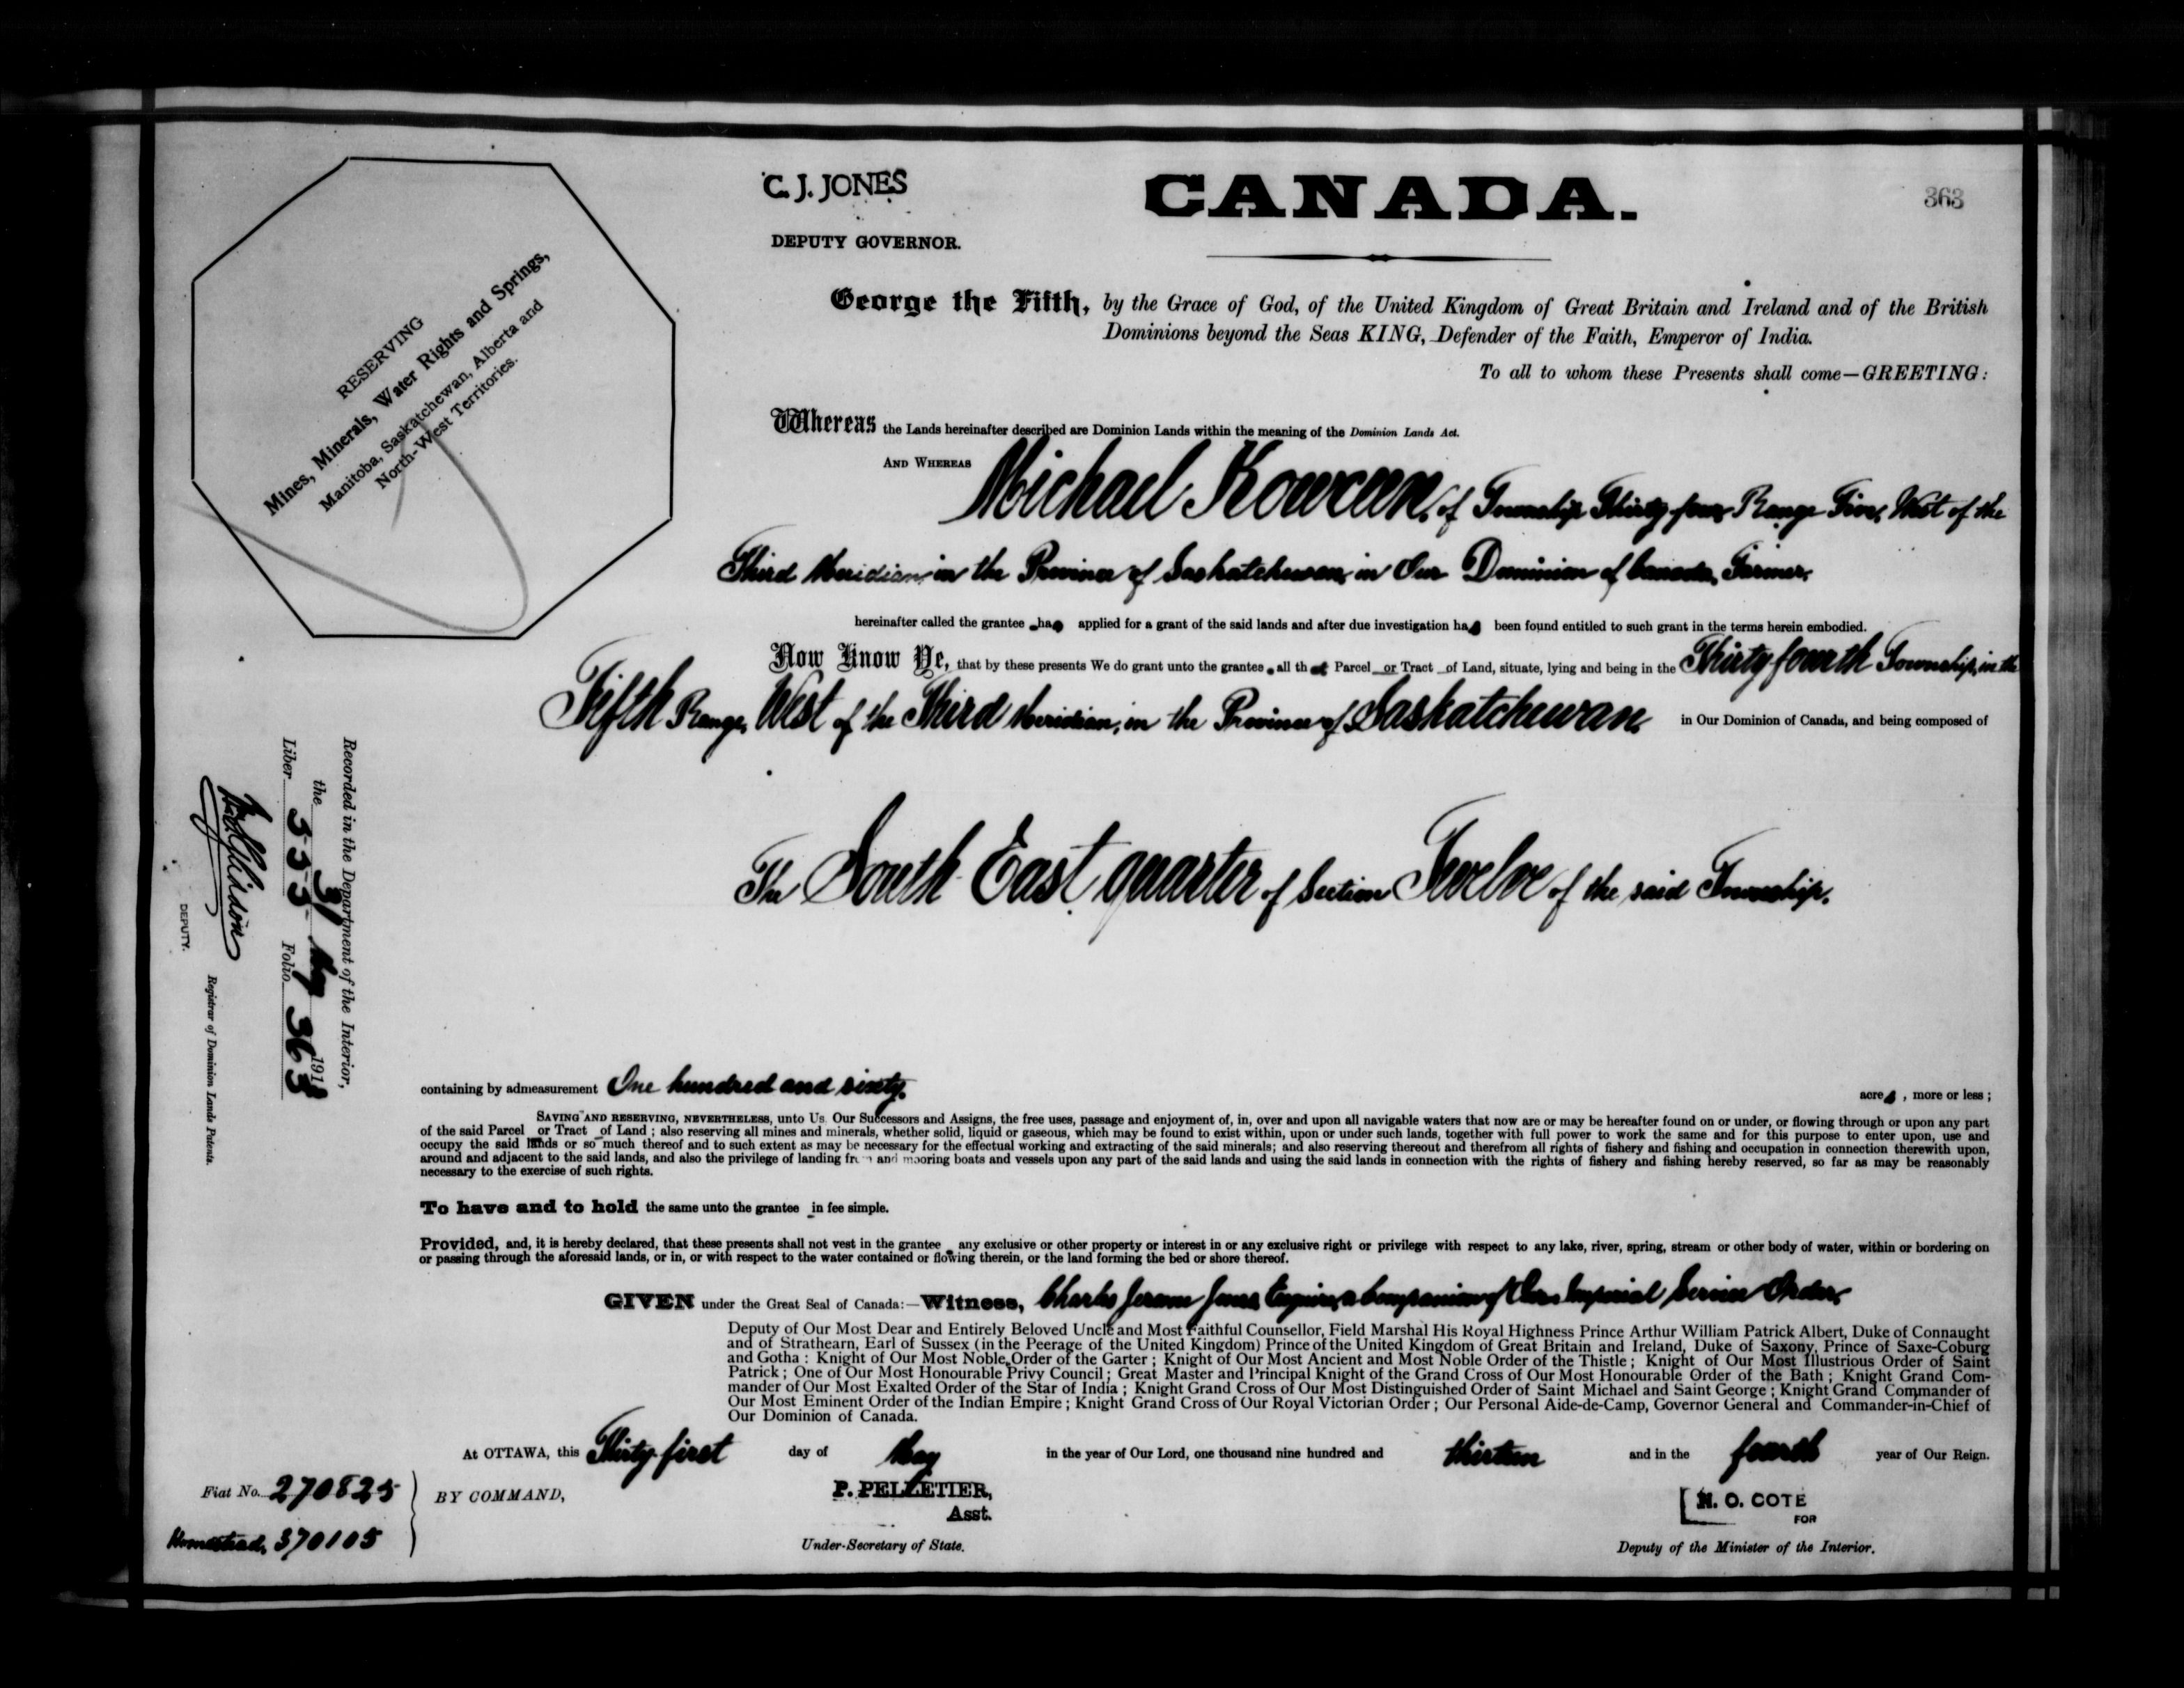 C. J. JONES
DEPUTY GOVERNOR.
CANADA.
363
RESERVING
Mines, Minerals, Water Rights and Springs,
Manitoba, Saskatchewan, Alberta and
North-West Territories.
George the Fifth, by the Grace of God, of the United Kingdom of Great Britain and Ireland and of the British
Dominions beyond the Seas KING, Defender of the Faith, Emperor of India.
To all to whom these Presents shall come—GREETING:
Whereas the Lands hereinafter described are Dominion Lands within the meaning of the Dominion Lands Act.
AND WHEREAS Michael Kowcun, of Township Thirty-four Range Five, West of the
Third Meridian in the Province of Saskatchewan, in Our Dominion of Canada, Farmer,
hereinafter called the grantee has applied for a grant of the said lands and after due investigation has been found entitled to such grant in the terms herein embodied.
Now Know Ye, that by these presents We do grant unto the grantee all that Parcel or Tract of Land, situate, lying and being in the Thirty-fourth Township, in the
Fifth Range, West of the Third Meridian, in the Province of Saskatchewan in Our Dominion of Canada, and being composed of
The South East quarter of Section Twelve of the said Township.
Recorded in the Department of the Interior,
the 31 May 1913
Liber 555 Folio 363
DEPUTY.
Registrar of Dominion Lands Patents.
containing by admeasurement One hundred and sixty. acres, more or less;
SAVING AND RESERVING, NEVERTHELESS, unto Us Our Successors and Assigns, the free uses, passage and enjoyment of, in, over and upon all navigable waters that now are or may be hereafter found on or under, or flowing through or upon any part
of the said Parcel or Tract of Land; also reserving all mines and minerals, whether solid, liquid or gaseous, which may be found to exist within, upon or under such lands, together with full power to work the same and for this purpose to enter upon, use and
occupy the said lands or so much thereof and to such extent as may be necessary for the effectual working and extracting of the said minerals; and also reserving thereout and therefrom all rights of fishery and fishing and occupation in connection therewith upon,
around and adjacent to the said lands, and also the privilege of landing from and mooring boats and vessels upon any part of the said lands and using the said lands in connection with the rights of fishery and fishing hereby reserved, so far as may be reasonably
necessary to the exercise of such rights.
To have and to hold the same unto the grantee in fee simple.
Provided, and, it is hereby declared, that these presents shall not vest in the grantee any exclusive or other property or interest in or any exclusive right or privilege with respect to any lake, river, spring, stream or other body of water, within or bordering on
or passing through the aforesaid lands, or in, or with respect to the water contained or flowing therein, or the land forming the bed or shore thereof.
GIVEN under the Great Seal of Canada:—Witness, Charles Jerome Jones Esquire, a Companion of Our Imperial Service Order,
Deputy of Our Most Dear and Entirely Beloved Uncle and Most Faithful Counsellor, Field Marshal His Royal Highness Prince Arthur William Patrick Albert, Duke of Connaught
and of Strathearn, Earl of Sussex (in the Peerage of the United Kingdom) Prince of the United Kingdom of Great Britain and Ireland, Duke of Saxony, Prince of Saxe-Coburg
and Gotha: Knight of Our Most Noble Order of the Garter; Knight of Our Most Ancient and Most Noble Order of the Thistle; Knight of Our Most Illustrious Order of Saint
Patrick; One of Our Most Honourable Privy Council; Great Master and Principal Knight of the Grand Cross of Our Most Honourable Order of the Bath; Knight Grand Com-
mander of Our Most Exalted Order of the Star of India; Knight Grand Cross of Our Most Distinguished Order of Saint Michael and Saint George; Knight Grand Commander of
Our Most Eminent Order of the Indian Empire; Knight Grand Cross of Our Royal Victorian Order; Our Personal Aide-de-Camp, Governor General and Commander-in-Chief of
Our Dominion of Canada.
At OTTAWA, this Thirty-first day of May in the year of Our Lord, one thousand nine hundred and thirteen and in the fourth year of Our Reign.
Fiat No. 270825
Homestead, 370105
BY COMMAND,
P. PELLETIER,
Asst.
Under-Secretary of State.
N. O. COTE
FOR
Deputy of the Minister of the Interior.